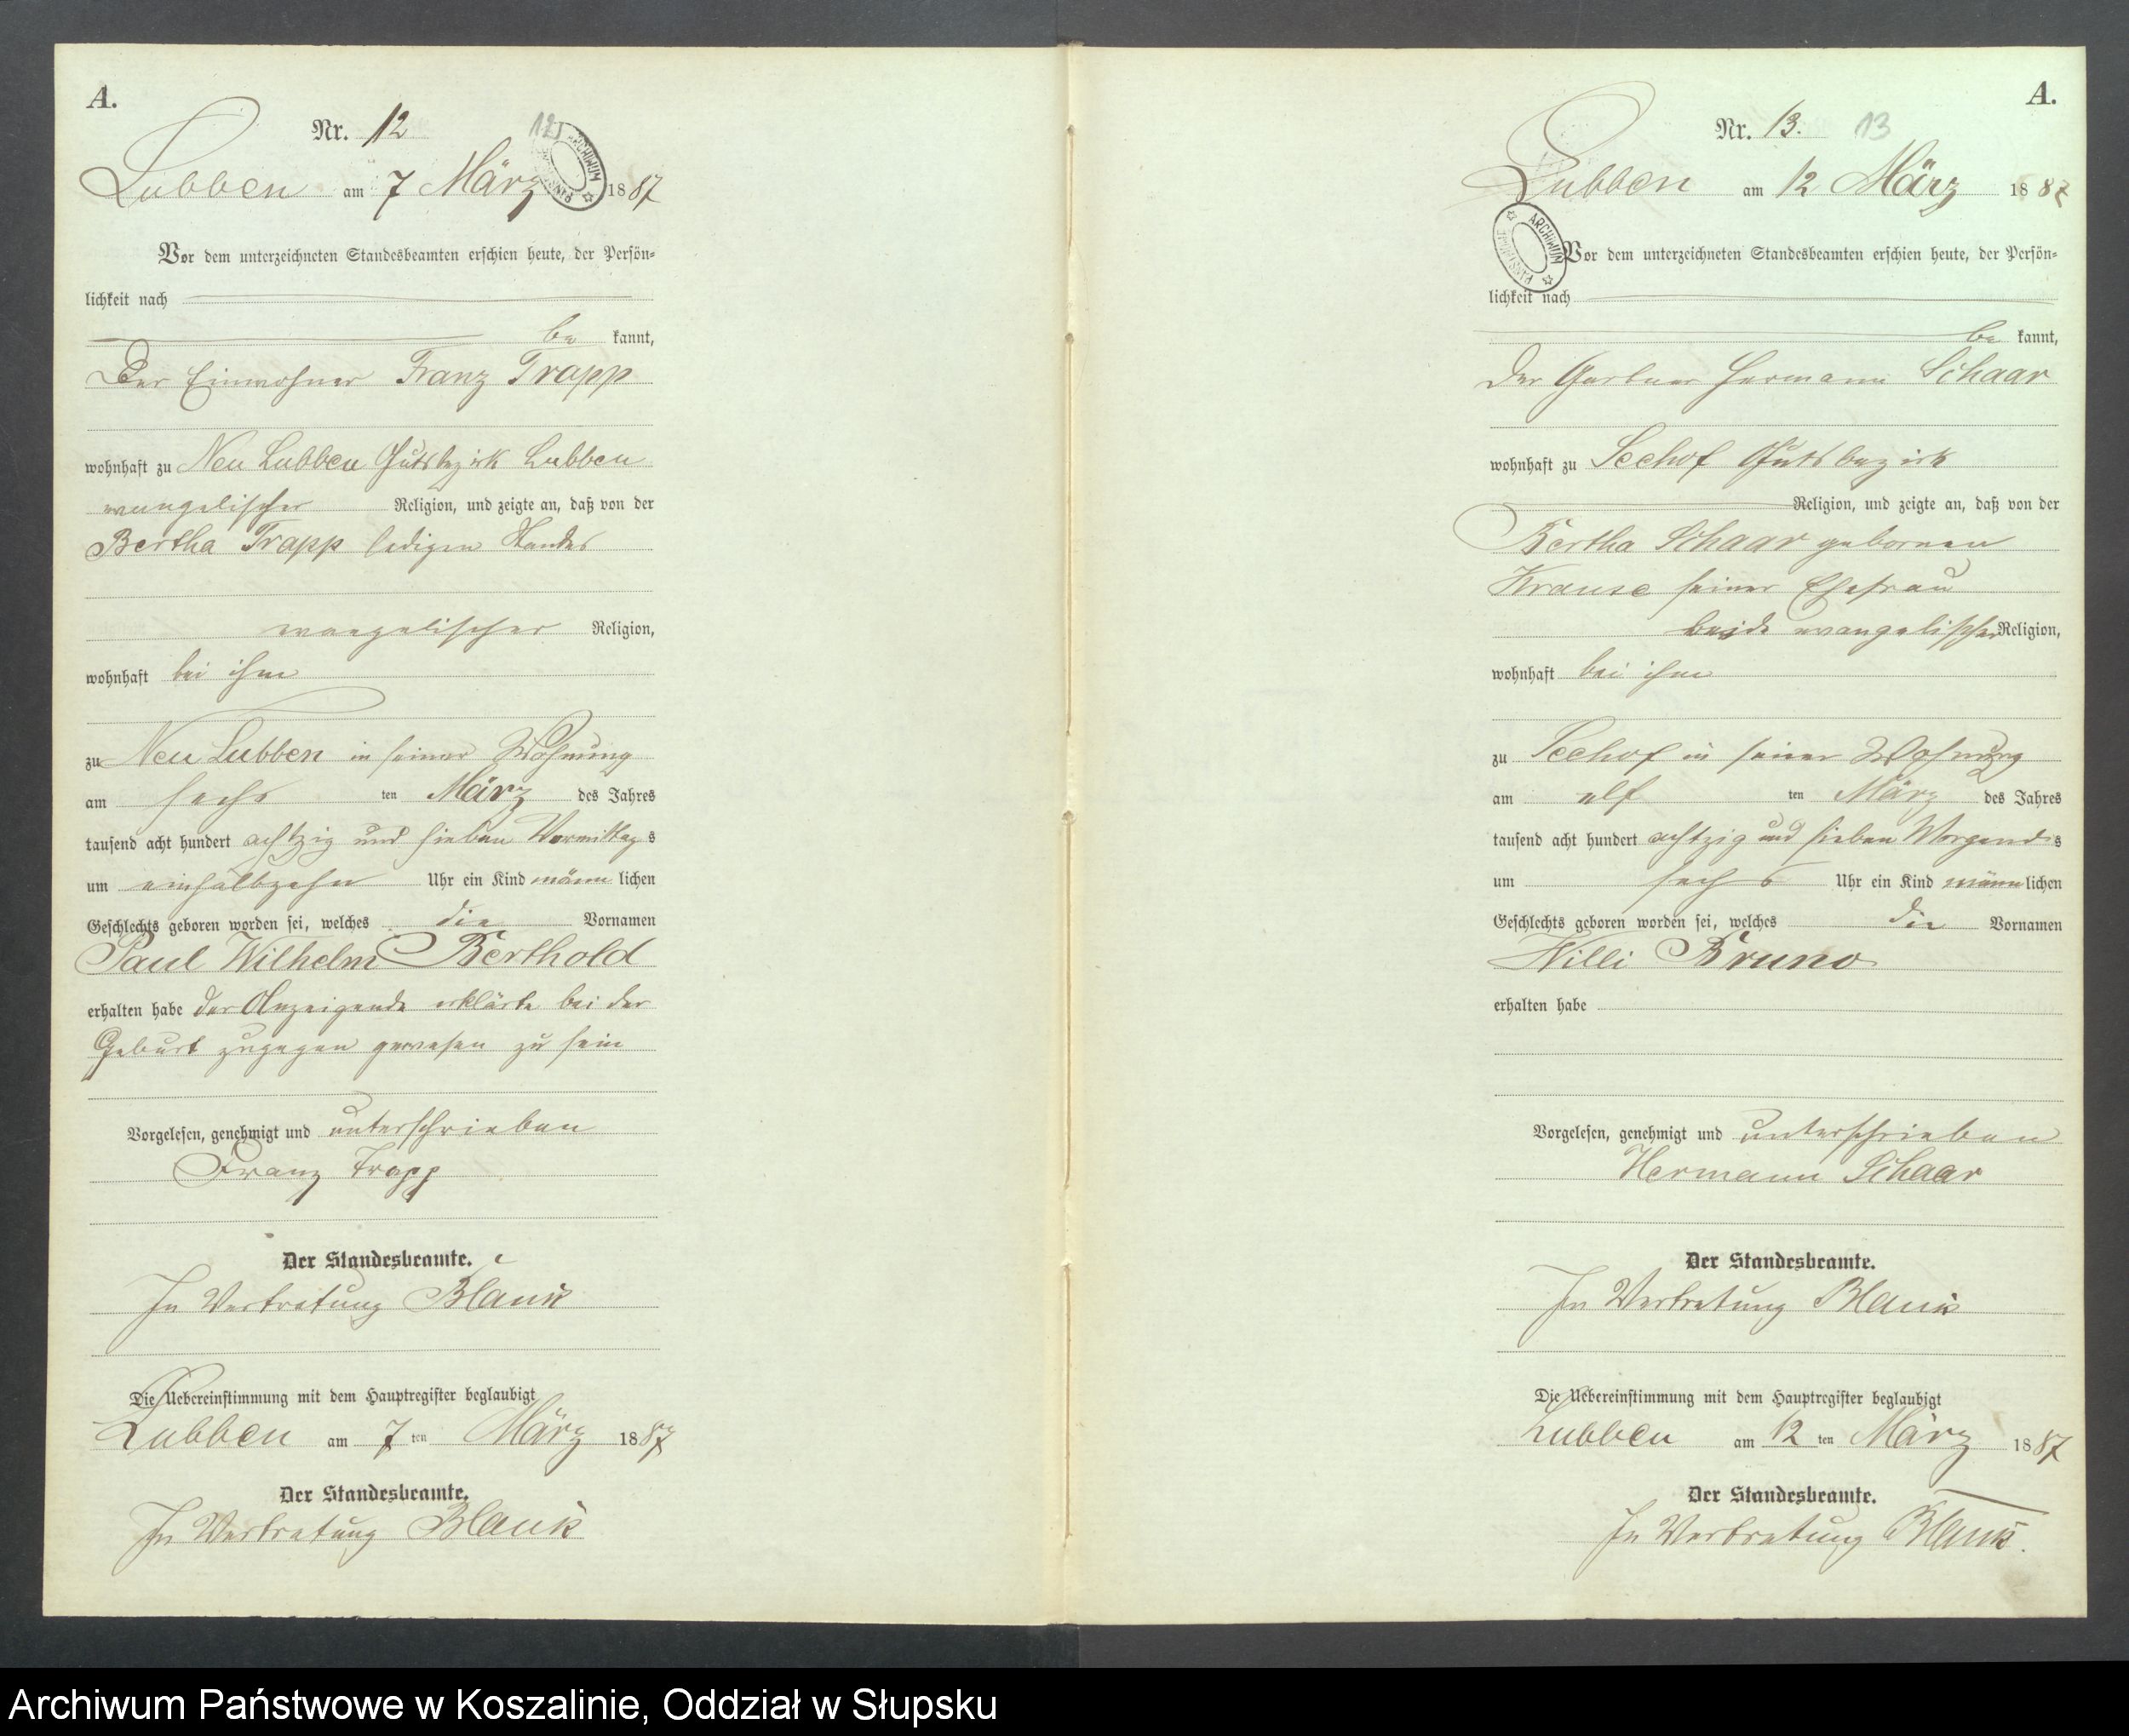 A.
Nr. 12
12
ARCHIWUM PAŃSTWOWE
Lubben am 7 März 1887
Vor dem unterzeichneten Standesbeamten erschien heute, der Persön-
lichkeit nach
be kannt,
Der Einwohner Franz Trapp
wohnhaft zu Neu Lubben Gutsbezirk Lubben
evangelischer Religion, und zeigte an, daß von der
Bertha Trapp ledigen Standes
evangelischer Religion,
wohnhaft bei ihm
zu Neu Lubben in seiner Wohnung
am sechs ten März des Jahres
tausend acht hundert achtzig und sieben Vormittag s
um einhalbzehn Uhr ein Kind männ lichen
Geschlechts geboren worden sei, welches die Vornamen
Paul Wilhelm Berthold
erhalten habe der Anzeigende erklärte bei der
Geburt zugegen gewesen zu sein
Vorgelesen, genehmigt und unterschrieben
Franz Trapp
Der Standesbeamte.
In Vertretung Blank
Die Uebereinstimmung mit dem Hauptregister beglaubigt
Lubben am 7 ten März 1887
Der Standesbeamte.
In Vertretung Blank
A.
Nr. 13.
13
Lubben am 12 März 1887
ARCHIWUM PAŃSTWOWE
Vor dem unterzeichneten Standesbeamten erschien heute, der Persön-
lichkeit nach
be kannt,
der Gärtner Hermann Schaar
wohnhaft zu Seehof Gutsbezirk
Religion, und zeigte an, daß von der
Bertha Schaar gebornen
Krause seiner Ehefrau
beide evangelischer Religion,
wohnhaft bei ihm
zu Seehof in seiner Wohnung
am elf ten März des Jahres
tausend acht hundert achtzig und sieben Morgends
um sechs Uhr ein Kind männ lichen
Geschlechts geboren worden sei, welches die Vornamen
Willi Bruno
erhalten habe
Vorgelesen, genehmigt und unterschrieben
Hermann Schaar
Der Standesbeamte.
In Vertretung Blank
Die Uebereinstimmung mit dem Hauptregister beglaubigt
Lubben am 12 ten März 1887
Der Standesbeamte.
In Vertretung Blank.
Archiwum Państwowe w Koszalinie, Oddział w Słupsku